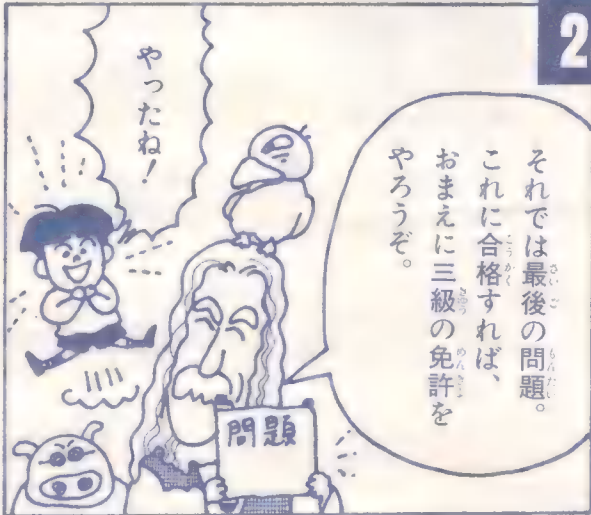 2
それでは最後の問題。
これに合格すれば、
おまえに三級の免許を
やろうぞ。
やったね！
問題